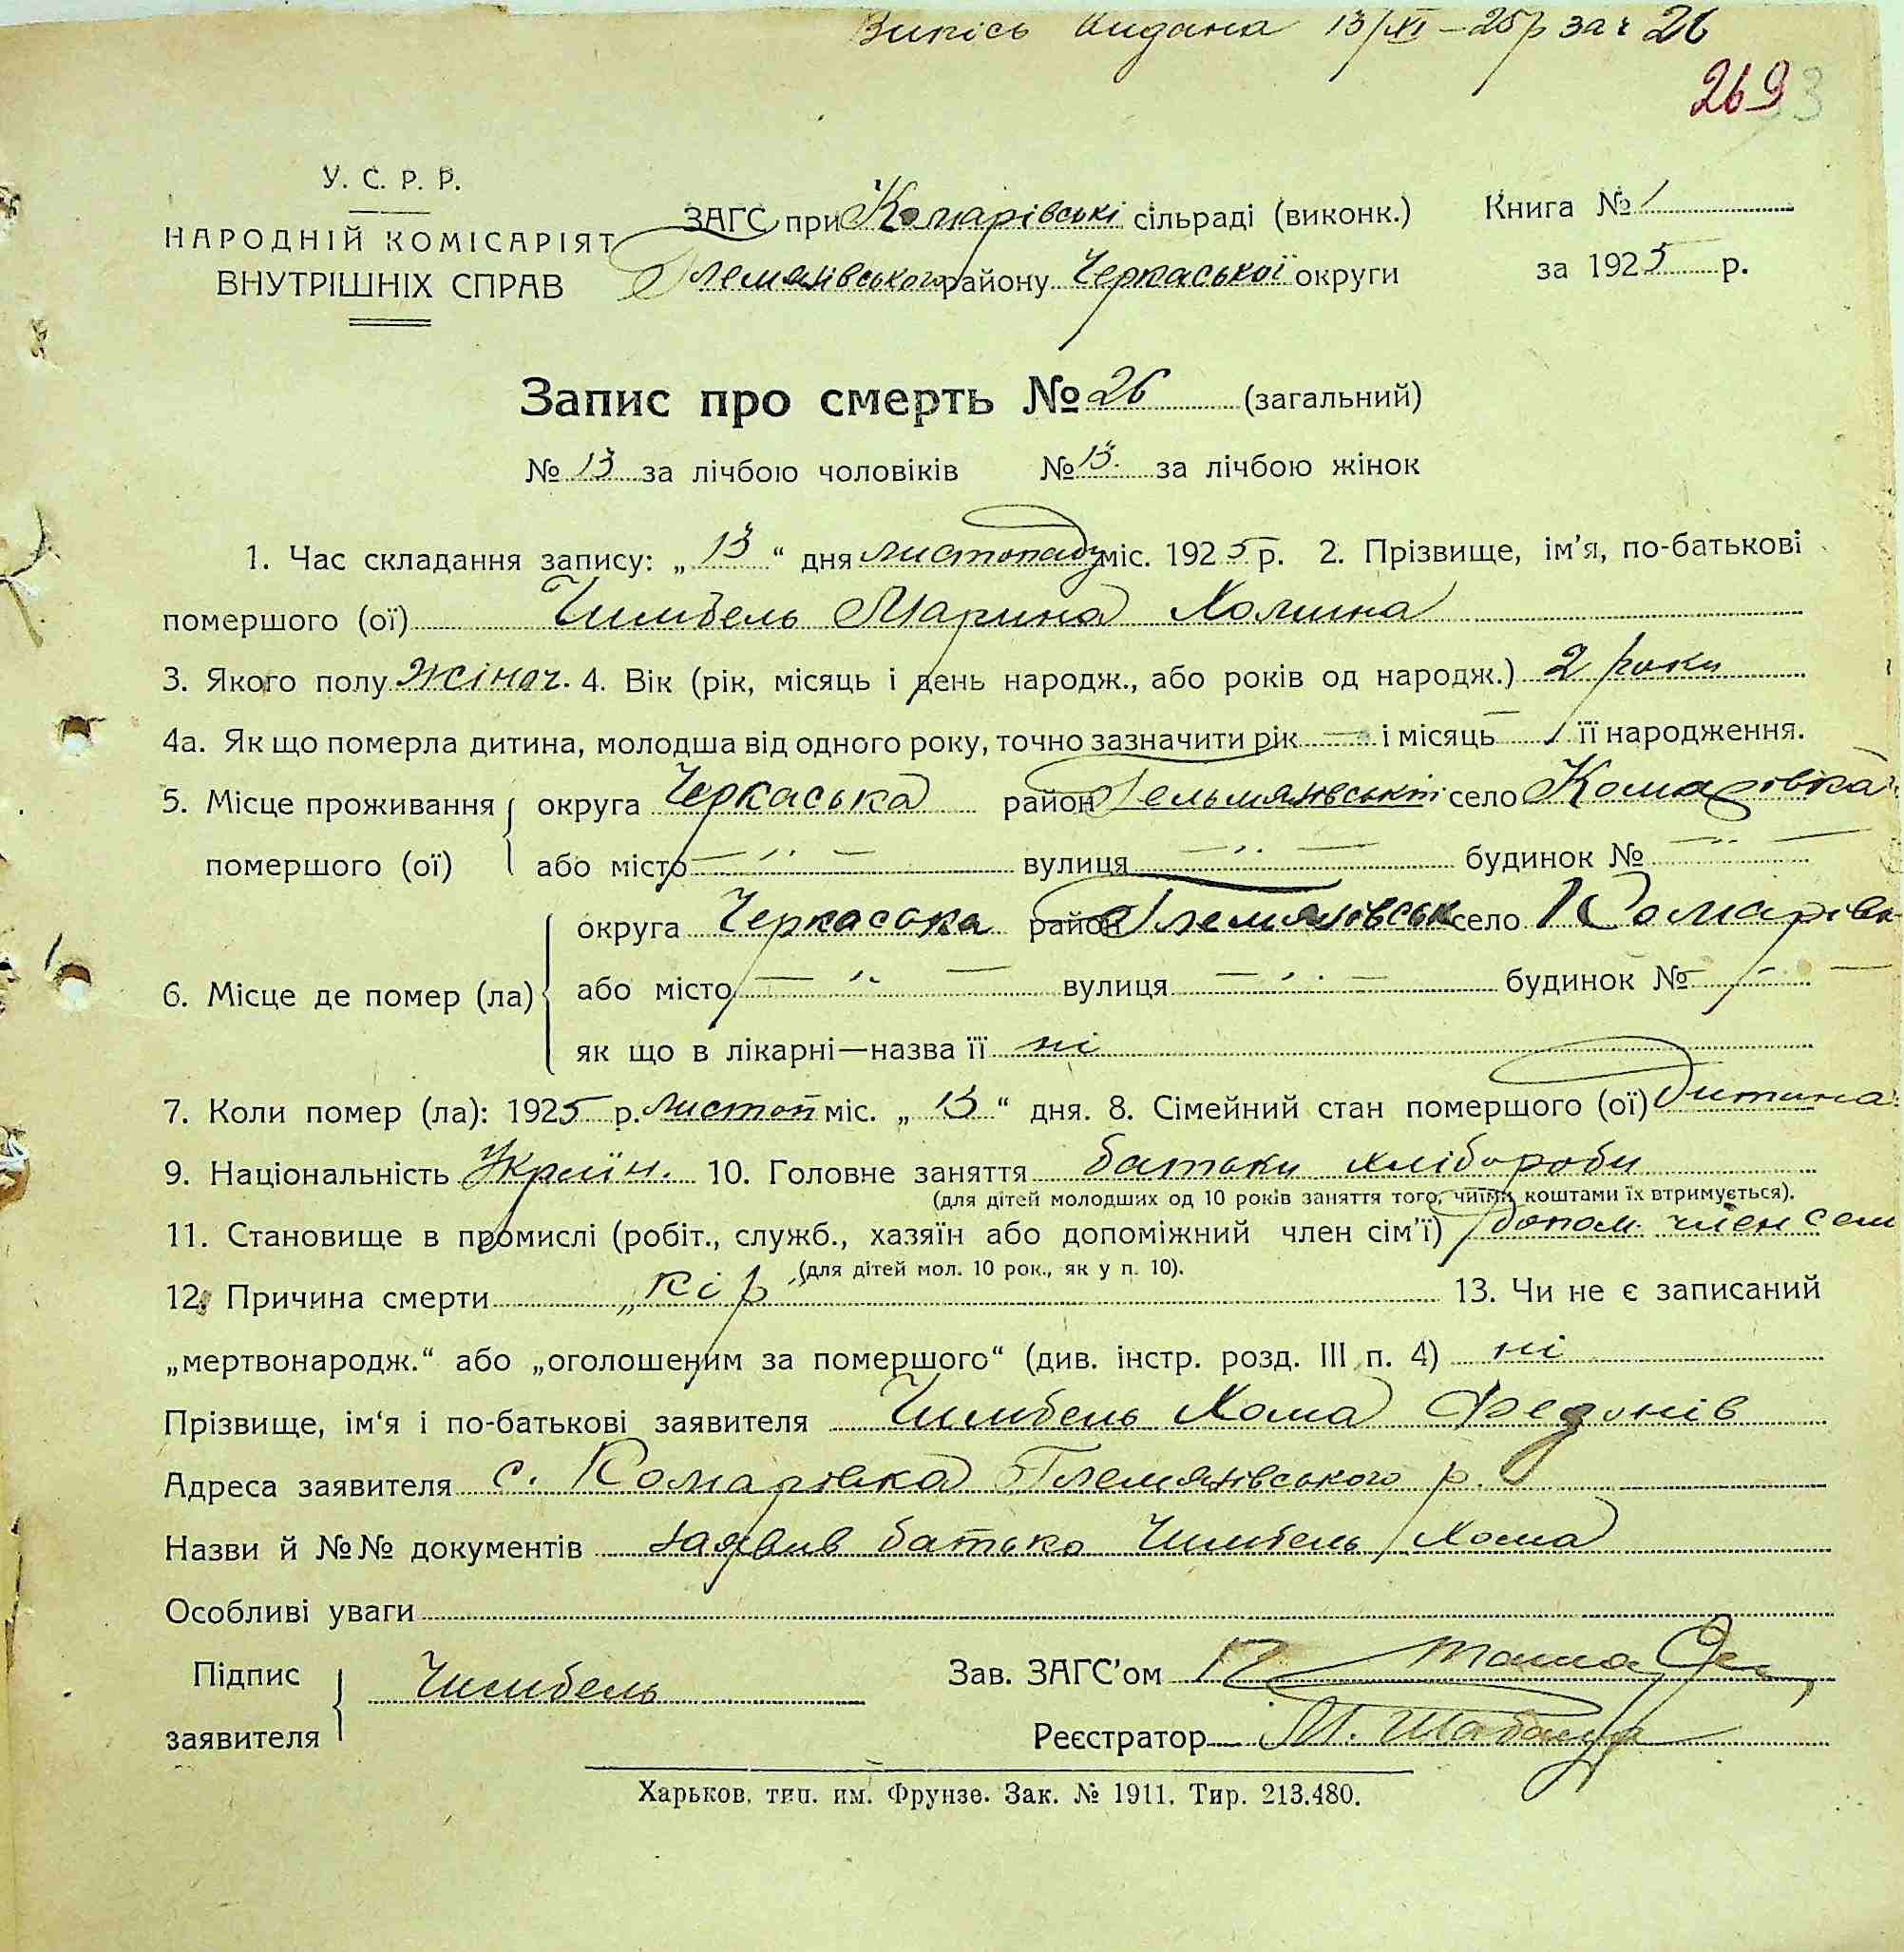 Випісь видана 13/XI – 25 р за ч 26
269
У. С. Р. Р.
НАРОДНІЙ КОМІСАРІЯТ
ВНУТРІШНІХ СПРАВ
ЗАГС при Комарівські сільраді (виконк.)
Глемязівського району Черкаської округи
Книга № 1
за 1925 р.
Запис про смерть № 26 (загальний)
№ 13 за лічбою чоловіків № 13. за лічбою жінок
1. Час складання запису: „ 13 “ дня листопаду міс. 1925 р. 2. Прізвище, ім’я, по-батькові
помершого (ої) Чимбель Марина Хомина
3. Якого полу жіноч. 4. Вік (рік, місяць і день народж., або років од народж.) 2 роки
4а. Як що померла дитина, молодша від одного року, точно зазначити рік — і місяць — її народження.
5. Місце проживання помершого (ої) округа Черкаська район Гельмязівський село Комарівка
або місто — „ — вулиця — „ — будинок № — „ —
6. Місце де помер (ла) округа Черкаська район Глемязівськ село Комарівк
або місто — „ — вулиця — „ — будинок № — „ —
як що в лікарні—назва її ні
7. Коли помер (ла): 1925 р. листоп міс. „ 13 “ дня. 8. Сімейний стан помершого (ої) Дитина
9. Національність Україн. 10. Головне заняття батьки хлібороби
(для дітей молодших од 10 років заняття того, чиїми коштами їх втримується).
11. Становище в промислі (робіт., служб., хазяїн або допоміжний член сім’ї) допом. член сем
(для дітей мол. 10 рок., як у п. 10).
12. Причина смерти „кір“ 13. Чи не є записаний
„мертвонародж.“ або „оголошеним за помершого“ (див. інстр. розд. III п. 4) ні
Прізвище, ім‘я і по-батькові заявителя Чимбель Хома
Адреса заявителя с. Комарівка Глемязівського р.
Назви й №№ документів заявив батько Чимбель Хома
Особливі уваги
Підпис заявителя Чимбель
Зав. ЗАГС’ом
Реєстратор М.
Харьков, тип. им. Фрунзе. Зак. № 1911. Тир. 213.480.